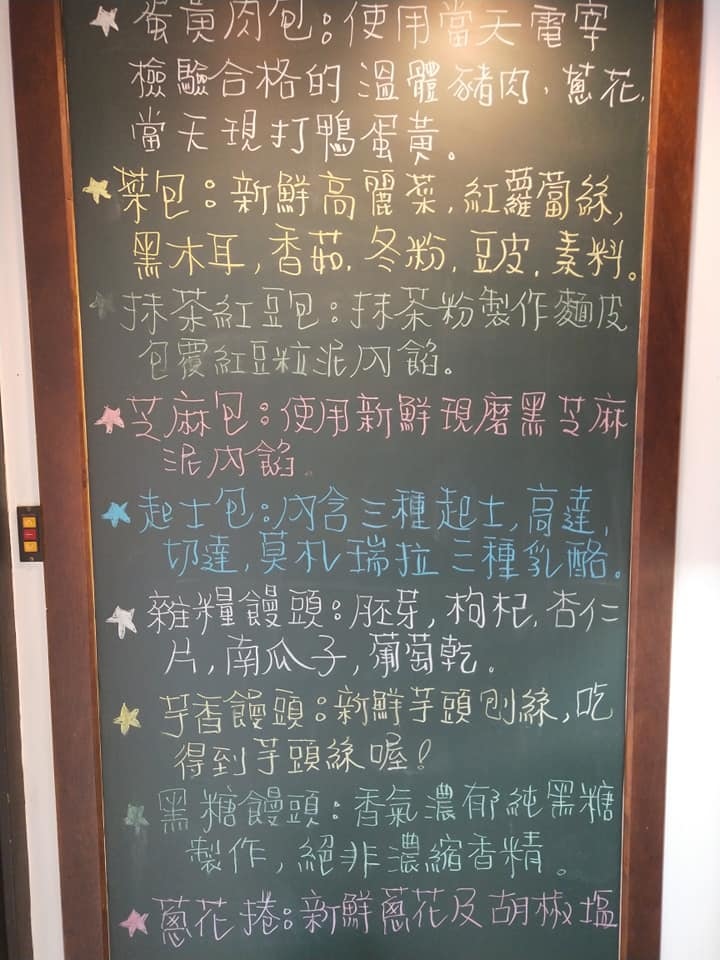 蛋黃肉包:使用當天電宰
檢驗合格的溫體豬肉,蔥花,
當天現打鴨蛋黃。
菜包:新鮮高麗菜,紅蘿蔔絲,
黑木耳,香菇,冬粉,豆皮,素料。
抹茶紅豆包:抹茶粉製作麵皮
包覆紅豆粒泥內餡。
芝麻包:使用新鮮現磨黑芝麻
泥內餡。
起士包:內含三種起士,高達,
切達,莫札瑞拉三種乳酪。
雜糧饅頭:胚芽,枸杞,杏仁
片,南瓜子,葡萄乾。
芋香饅頭:新鮮芋頭刨絲,吃
得到芋頭絲喔!
黑糖饅頭:香氣濃郁純黑糖
製作,絕非濃縮香精。
蔥花捲:新鮮蔥花及胡椒塩